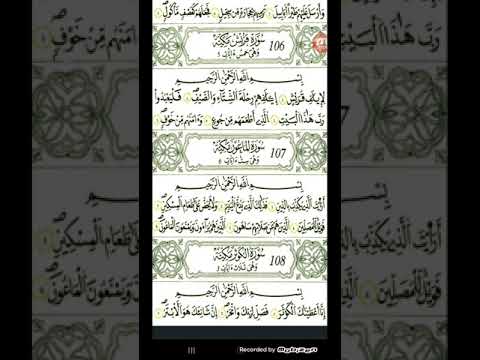 وَأَرْسَلَ عَلَيْهِمْ طَيْراً اَبَابِيلَ تَرْمِيهِم بِحِجَارَةٍ مِّن سِجِّيلٍ فَجَعَلَهُمْ كَعَصْفٍ مَّأْكُولٍ
سُورَةُ قُرَيْشٍ مَكِّيَّةٌ 106
وَهْيَ خَمْسُ ءَايَاتٍ
بِسْمِ اللَّهِ الرَّحْمَٰنِ الرَّحِيمِ
لِإِيلَٰفِ قُرَيْشٍ إِۦلَٰفِهِمْ رِحْلَةَ الشِّتَآءِ وَالصَّيْفِ فَلْيَعْبُدُواْ
رَبَّ هَٰذَا الْبَيْتِ الَّذِي أَطْعَمَهُم مِّن جُوعٍ وَءَامَنَهُم مِّنْ خَوْفٍ
سُورَةُ الْمَاعُونَ مَكِّيَّةٌ 107
وَهْيَ سِتُّ ءَايَاتٍ
بِسْمِ اللَّهِ الرَّحْمَٰنِ الرَّحِيمِ
أَرَٰٓيْتَ الَّذِي يُكَذِّبُ بِالدِّينِ فَذَٰلِكَ الَّذِي يَدُعُّ الْيَتِيمَ وَلَا يَحُضُّ عَلَىٰ طَعَامِ الْمِسْكِينِ
فَوَيْلٌ لِّلْمُصَلِّينَ الَّذِينَ هُمْ عَن صَلَاتِهِمْ سَاهُونَ الَّذِينَ هُمْ يُرَآءُونَ وَيَمْنَعُونَ الْمَاعُونَ
سُورَةُ الْكَوْثَرِ مَكِّيَّةٌ 108
وَهْيَ ثَلَاثُ ءَايَاتٍ
بِسْمِ اللَّهِ الرَّحْمَٰنِ الرَّحِيمِ
إِنَّآ أَعْطَيْنَٰكَ الْكَوْثَرَ فَصَلِّ لِرَبِّكَ وَانْحَرْ إِنَّ شَانِئَكَ هُوَ الْأَبْتَرُ
Recorded by Mobizen